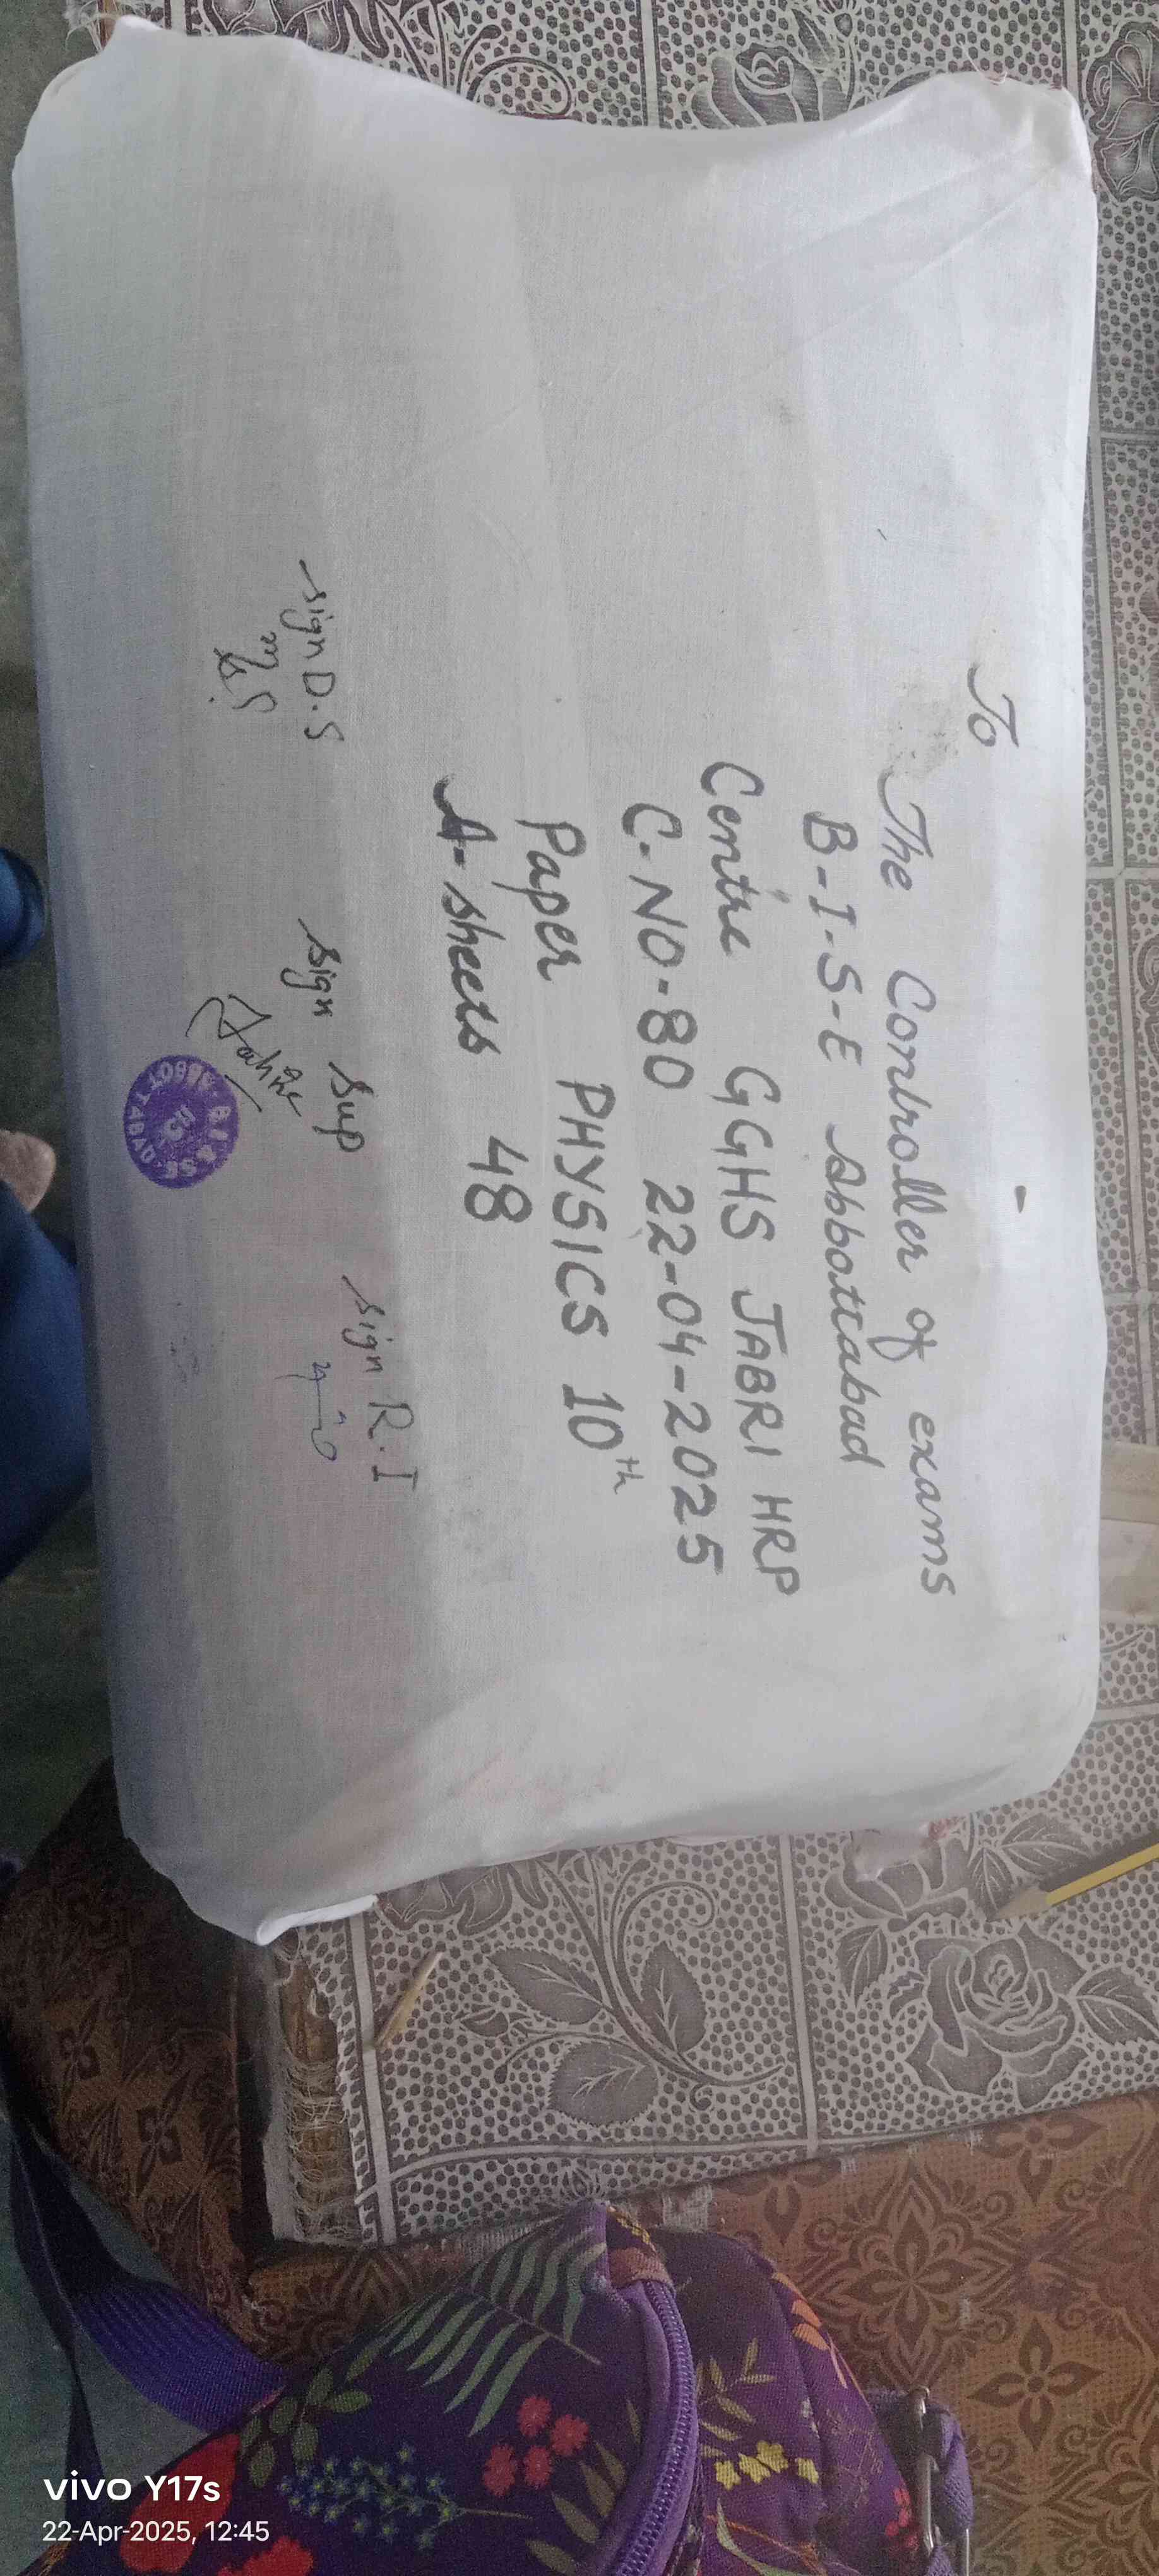 To
The Controller of exams
B-I-S-E Abbottabad
Centre GGHS JABRI HRP
C-NO-80 22-04-2025
Paper PHYSICS 10th
A-sheets 48
sign D.S sign Sup sign R.I
vivo Y17s
22-Apr-2025, 12:45